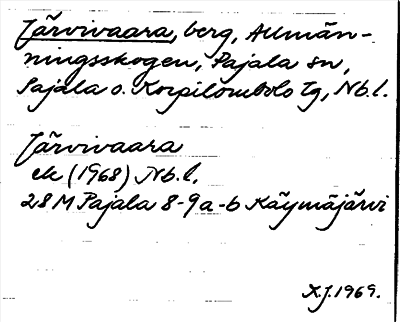 Järvivaara, berg, Allmän-
ningsskogen, Pajala sn,
Pajala o. Korpilombolo tg, Nb.l.
Järvivaara
ek (1968) Nb.l.
28 M Pajala 8-9 a-b Käymäjärvi
K.J. 1969.